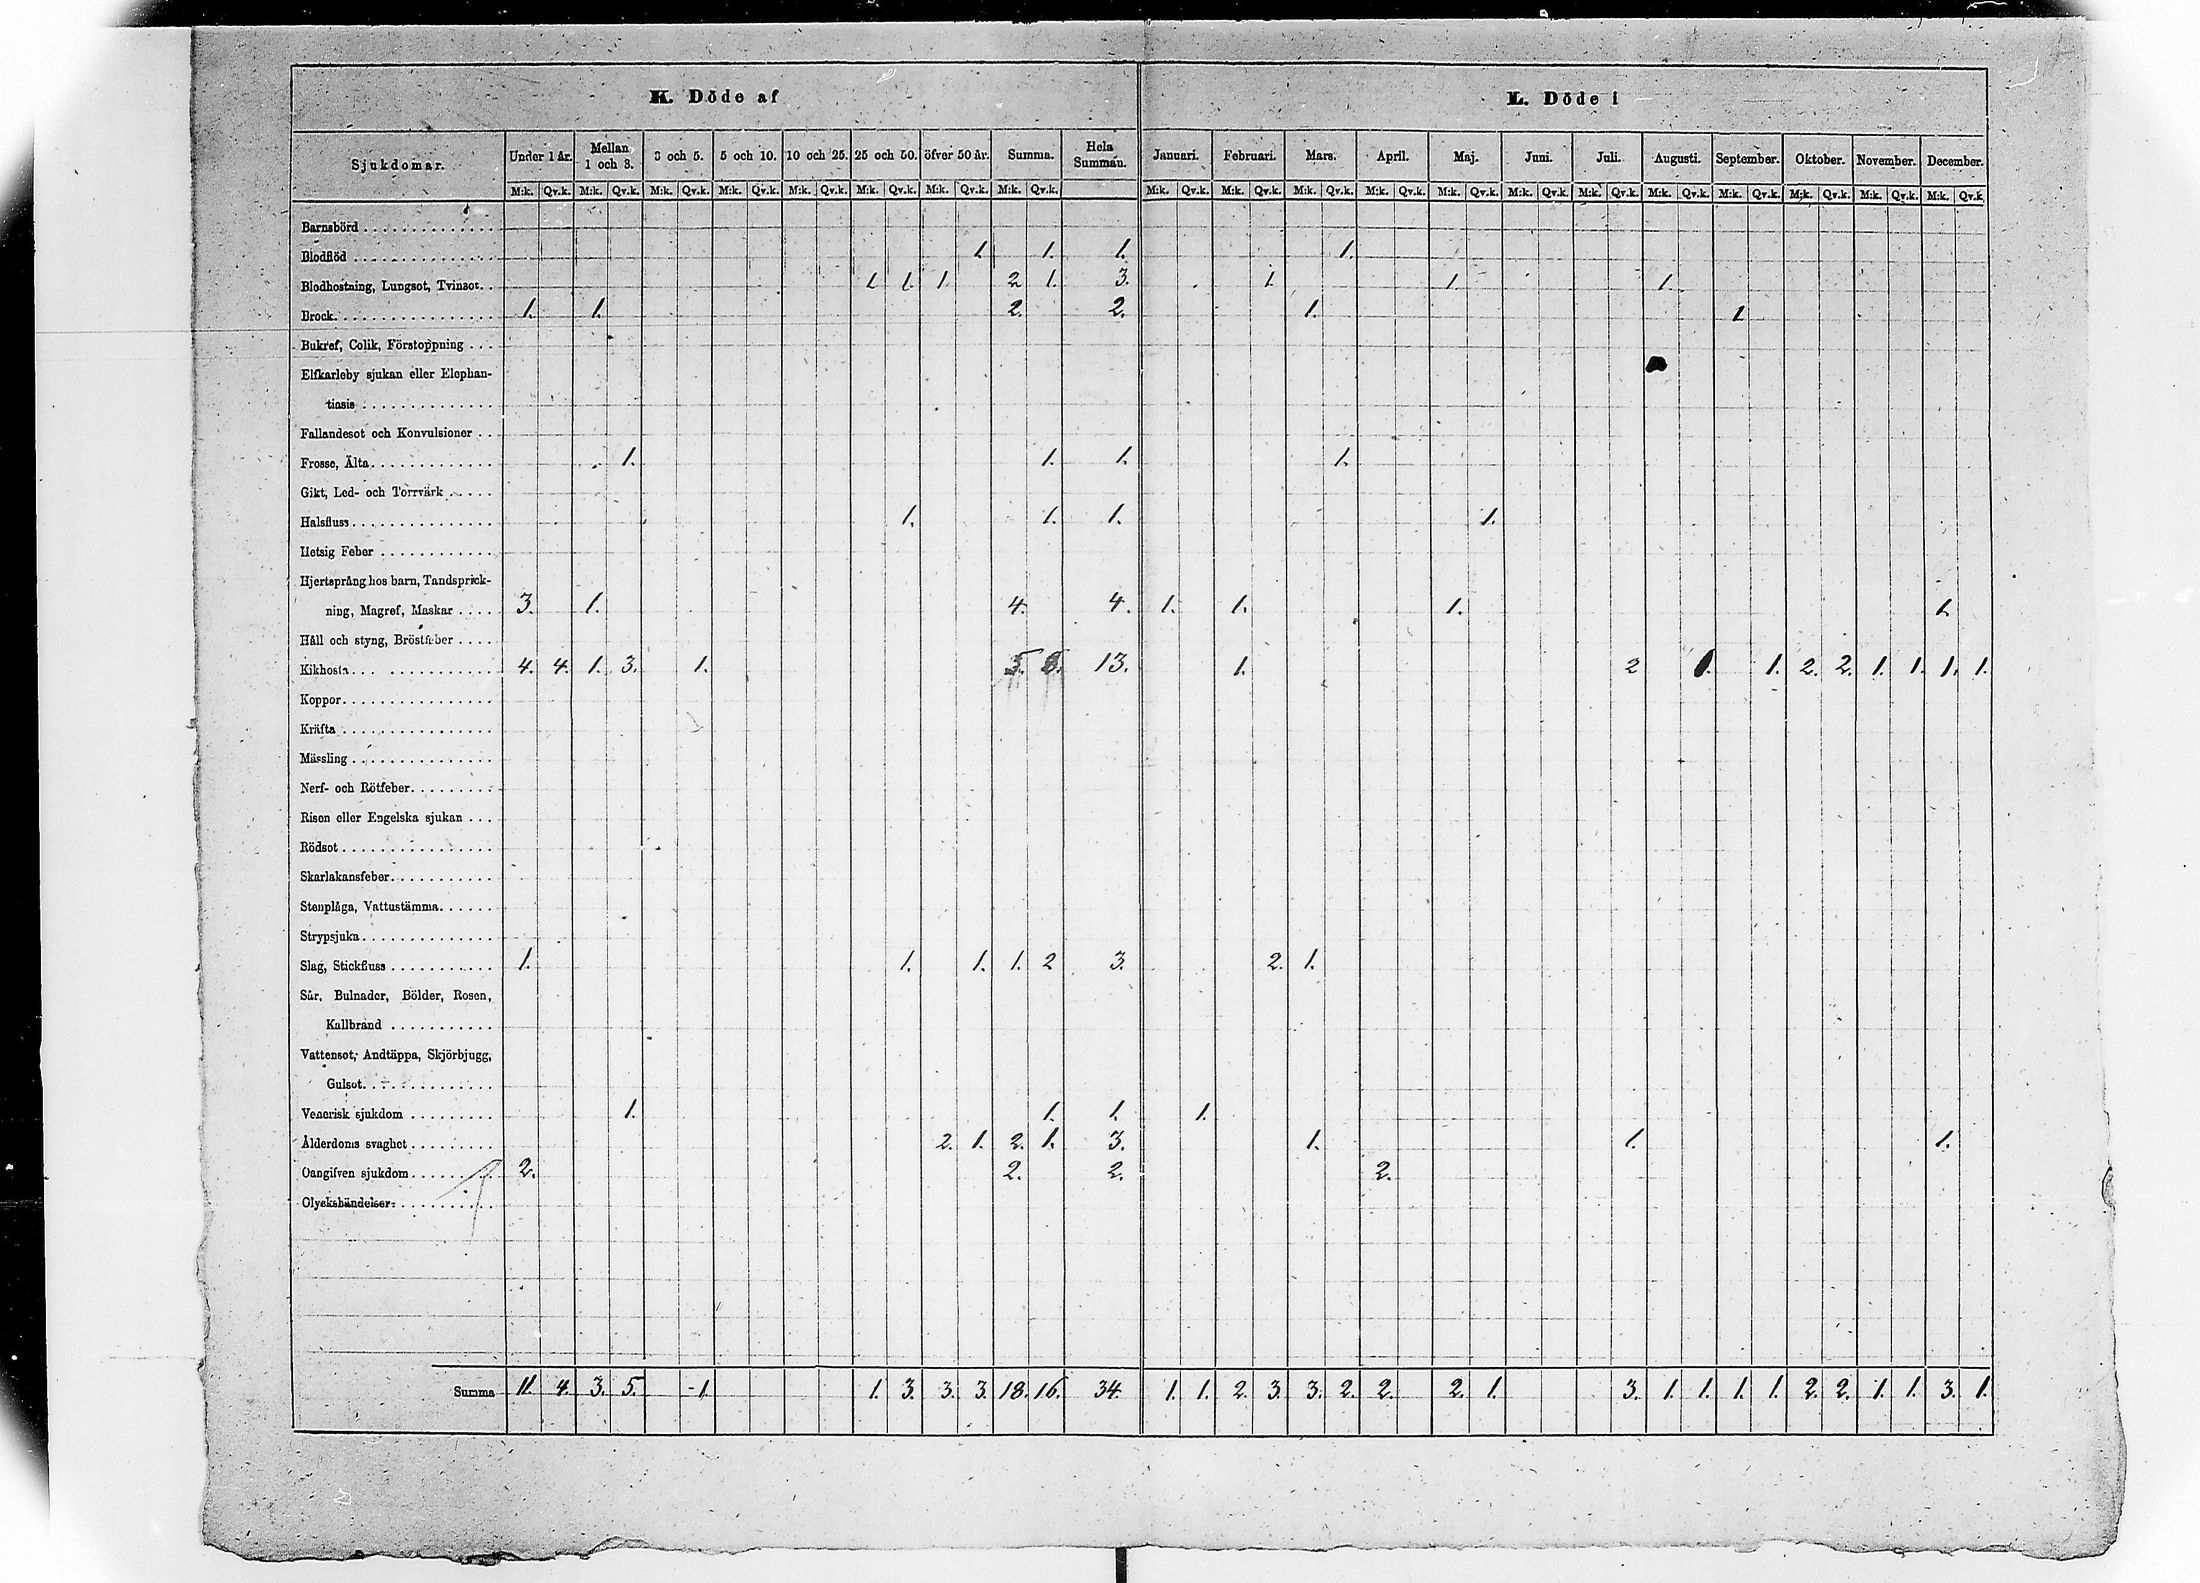 K. Döde af L. Döde i
Sjukdomar. Under 1 år. Mellan 1 och 3. 3 och 5. 5 och 10. 10 och 25. 25 och 50. öfver 50 år. Summa. Hela Summan. Januari. Februari. Mars. April. Maj. Juni. Juli. Augusti. September. Oktober. November. December.
M:k. Qv.k. M:k. Qv.k. M:k. Qv.k. M:k. Qv.k. M:k. Qv.k. M:k. Qv.k. M:k. Qv.k. M:k. Qv.k. M:k. Qv.k. M:k. Qv.k. M:k. Qv.k. M:k. Qv.k. M:k. Qv.k. M:k. Qv.k. M:k. Qv.k. M:k. Qv.k. M:k. Qv.k. M:k. Qv.k. M:k. Qv.k. M:k. Qv.k.
Barnsbörd
Blodflöd 1. 1. 1. 1.
Blodhostning, Lungsot, Tvinsot. 1. 1. 1. 2. 1. 3. 1. 1. 1.
Brock. 1. 1. 2. 2. 1. 1.
Bukref, Colik, Förstoppning
Elfkarleby sjukan eller Elephan-
tiasis
Fallandesot och Konvulsioner
Frosse, Älta 1. 1. 1. 1.
Gikt, Led- och Torrvärk
Halsfluss 1. 1. 1. 1.
Hetsig Feber
Hjertsprång hos barn, Tandsprick-
ning, Magref, Maskar 3. 1. 4. 4. 1. 1. 1. 1.
Håll och styng, Bröstfeber
Kikhosta 4. 4. 1. 3. 1. 5. 8. 13. 1. 2 1. 1. 2. 2. 1. 1. 1. 1.
Koppor
Kräfta
Mässling
Nerf- och Rötfeber
Risen eller Engelska sjukan
Rödsot
Skarlakansfeber
Stenplåga, Vattustämma
Strypsjuka
Slag, Stickfluss 1. 1. 1. 1. 2 3. 2. 1.
Sår, Bulnader, Bölder, Rosen,
Kallbrand
Vattensot, Andtäppa, Skjörbjugg,
Gulsot
Venerisk sjukdom 1. 1. 1. 1.
Ålderdoms svaghet 2. 1. 2. 1. 3. 1. 1. 1.
Oangifven sjukdom 2. 2. 2. 2.
Olyckshändelser
Summa 11. 4. 3. 5. 1. 1. 3. 3. 3. 18. 16. 34. 1. 1. 2. 3. 3. 2. 2. 2. 1. 3. 1. 1. 1. 1. 2. 2. 1. 1. 3. 1.